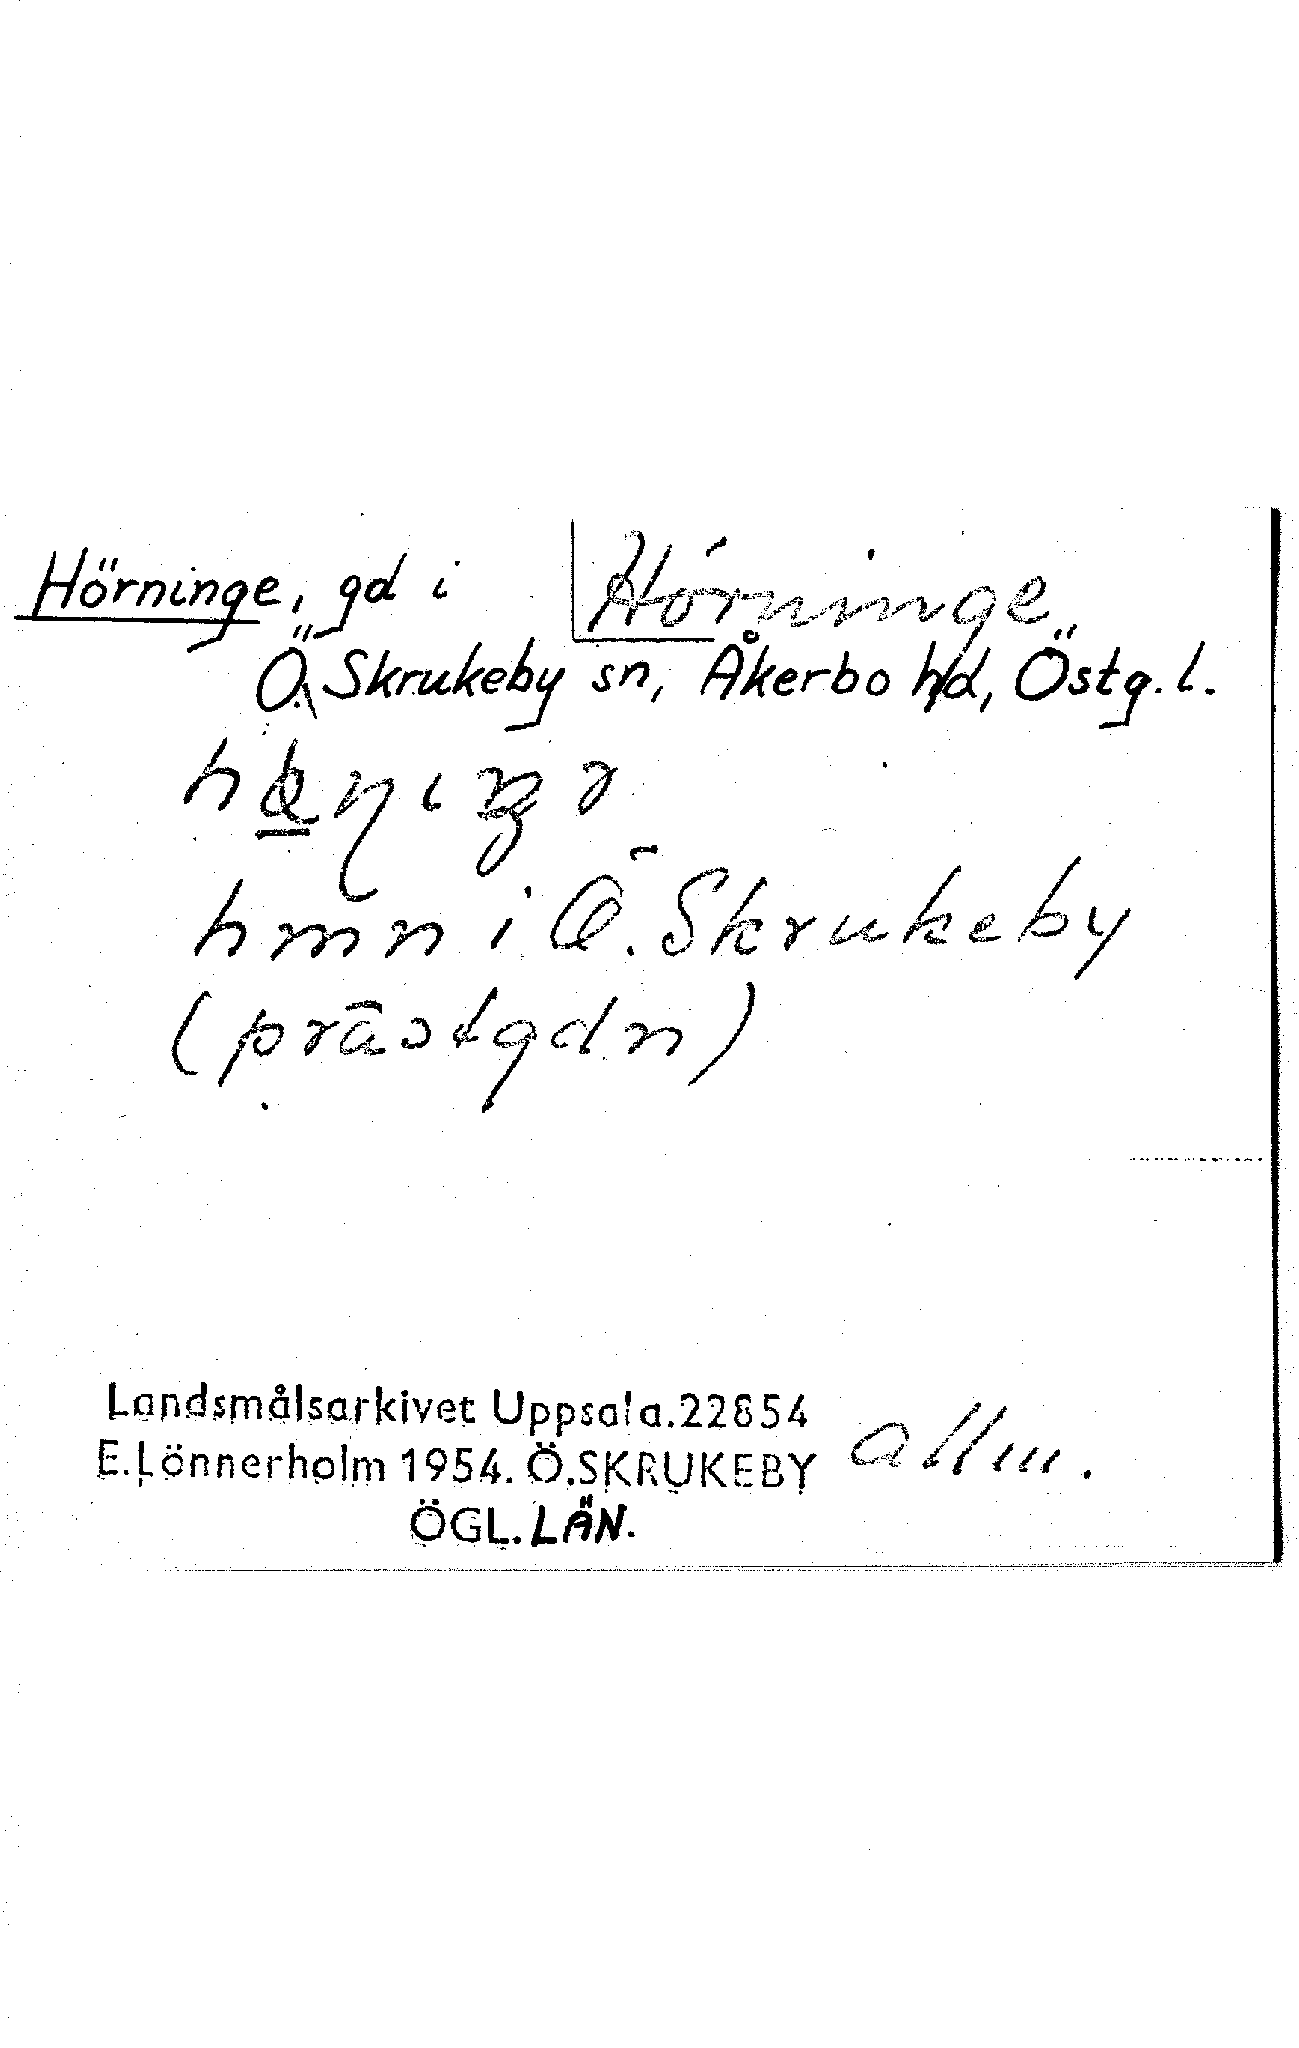 Hörninge, gd i
Hörninge
Ö. Skrukeby sn, Åkerbo hd, Östg. l.
hmn i Ö. Skrukeby
(prästgdn)
Landsmålsarkivet Uppsala.22854
E.Lönnerholm 1954. Ö.SKRUKEBY
allm.
ÖGL. LÄN.